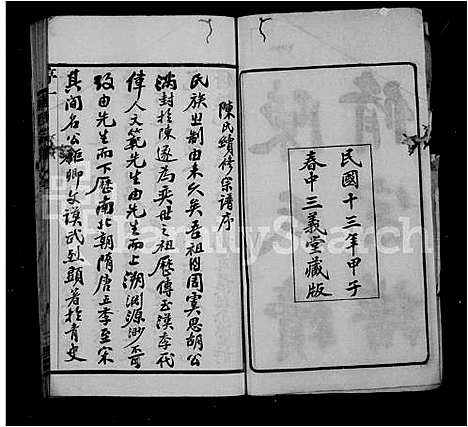 民國十三年甲子
春中三義堂藏版
陳氏續修宗譜序
民族之制由來久矣吾祖自周實思胡公
滿封於陳遂為奕世之祖歷傳至漢季代
偉人文範先生由先生而上溯淵源渺不可
攷由先生而下歷南北朝隋唐五季至宋
其間名公鉅卿文謨武烈顯著於青史
序一
FamilySearch